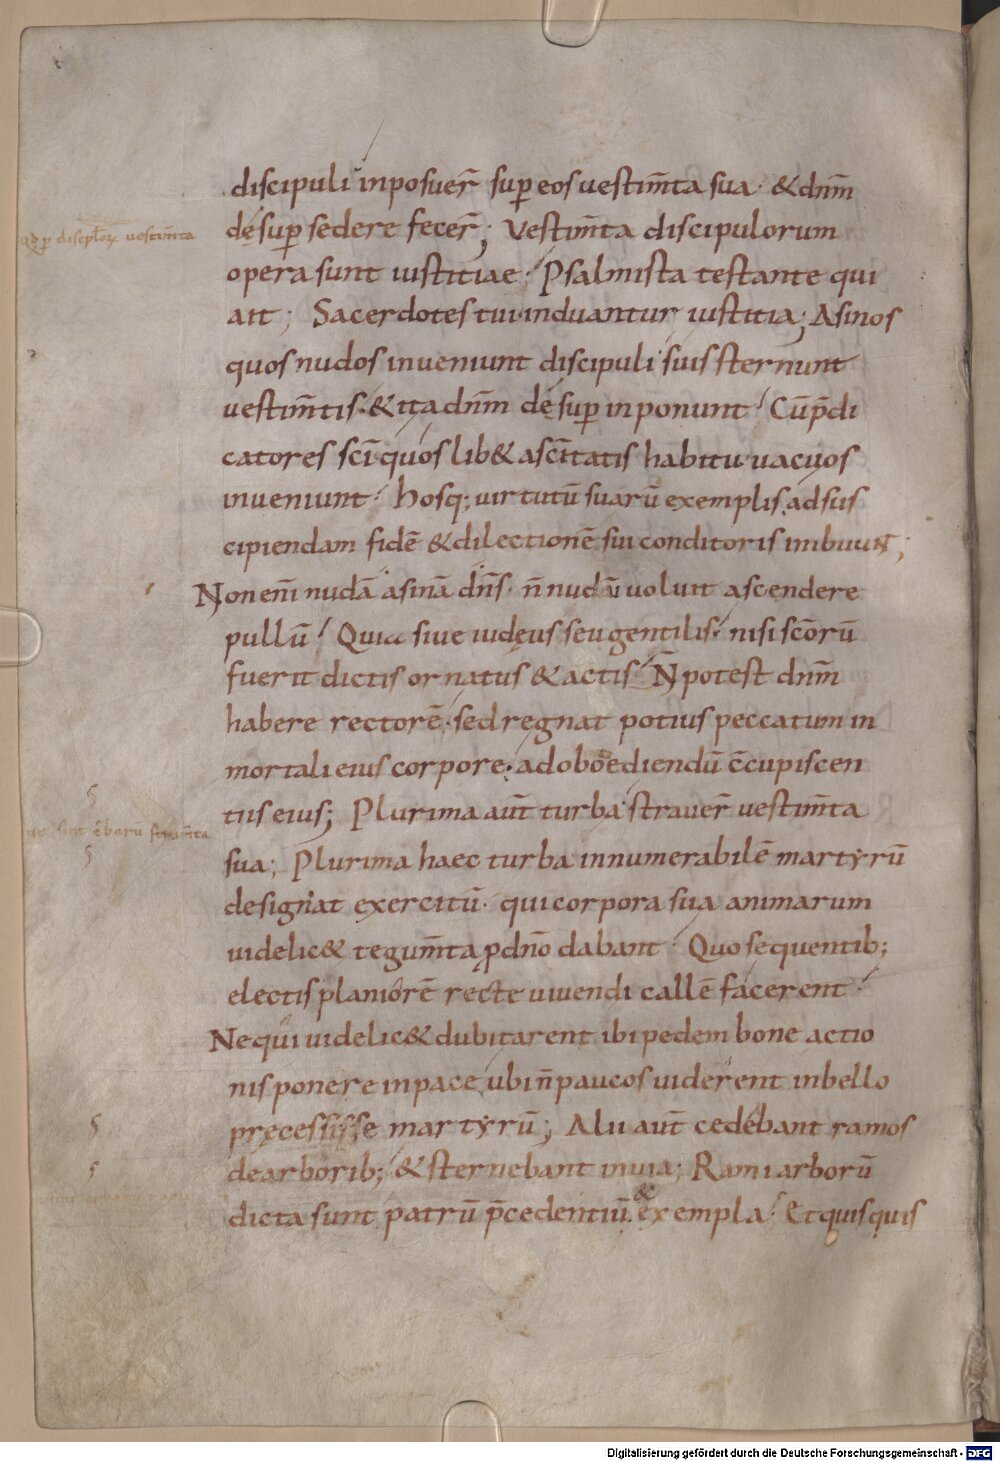 discipuli inposuer̄ suꝑ eos uestim̄ta sua · & dn̄m
desuꝑ sedere fecer̄; Vestim̄ta discipulorum
discipl̄oꝝ uestim̄ta
opera sunt iustitiae · Psalmista testante qui
ait; Sacerdotes tui induantur iustitia; Asinos
quos nudos inueniunt discipuli suis sternunt
uestim̄tis · & ita dn̄m desuꝑ inponunt · Cū p̄di
catores sc̄i quos lib& a sc̄itatis habitu uacuos
inueniunt · hosq; uirtutū suarū exemplis ad sus
cipiendam fidē & dilectionē sui conditoris imbuunt;
Non eni̅ nudā asinā dn̄s · n̄ nudū uoluit ascendere
pullū · Quia siue iudęus seu gentilis · nisi sc̄orū
fuerit dictis ornatus & actis · N̄ potest dn̄m
habere rectorē · sed regnat potius peccatum in
mortali eius corpore · ad oboediendū c̄cupiscen
tiis eius; Plurima aut̄ turba strauer̄ uestim̄ta
sua; Plurima haec turba innumerabilē martyrū
designat exercitū · qui corpora sua animarum
uidelic& tegum̄ta ꝓ dn̄o dabant · Quo sequentib;
electis planiorē recte uiuendi callē facerent ·
Ne qui uidelic& dubitarent ibi pedem bone actio
nis ponere in pace ubi n̄ paucos uiderent in bello
pręcessisse martyrū; Alii aut̄ cedebant ramos
de arborib; & sternebant in uia; Rami arborū
dicta sunt patrū p̄cedentiū · & exempla · Et quisquis
Digitalisierung gefördert durch die Deutsche Forschungsgemeinschaft - DFG